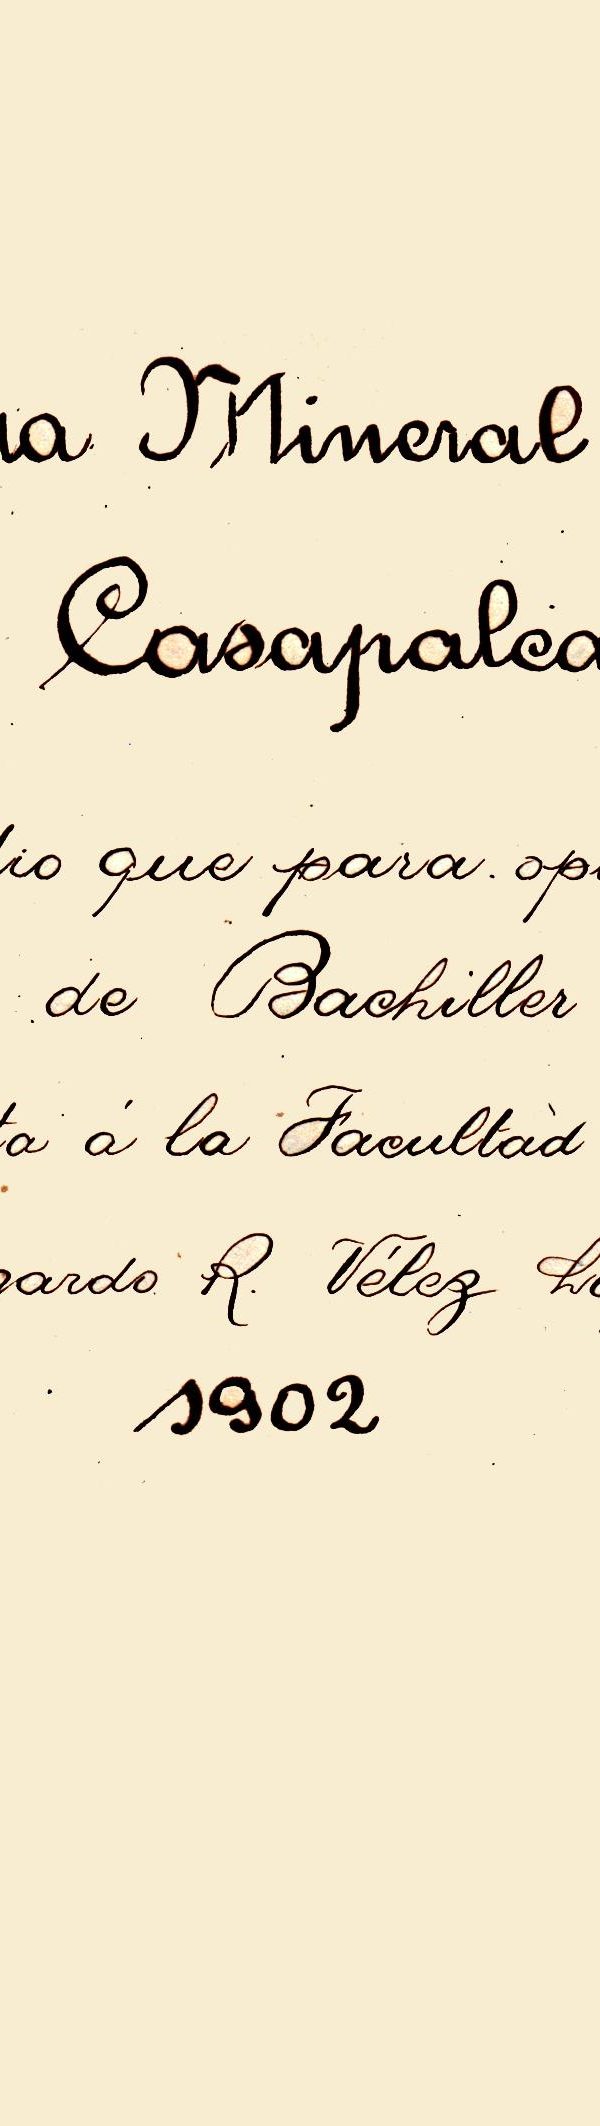 ua Mineral
Casapalca
dio que para. op
de Bachiller
ta á la Facultàd
gardo R. Vélez L
1902